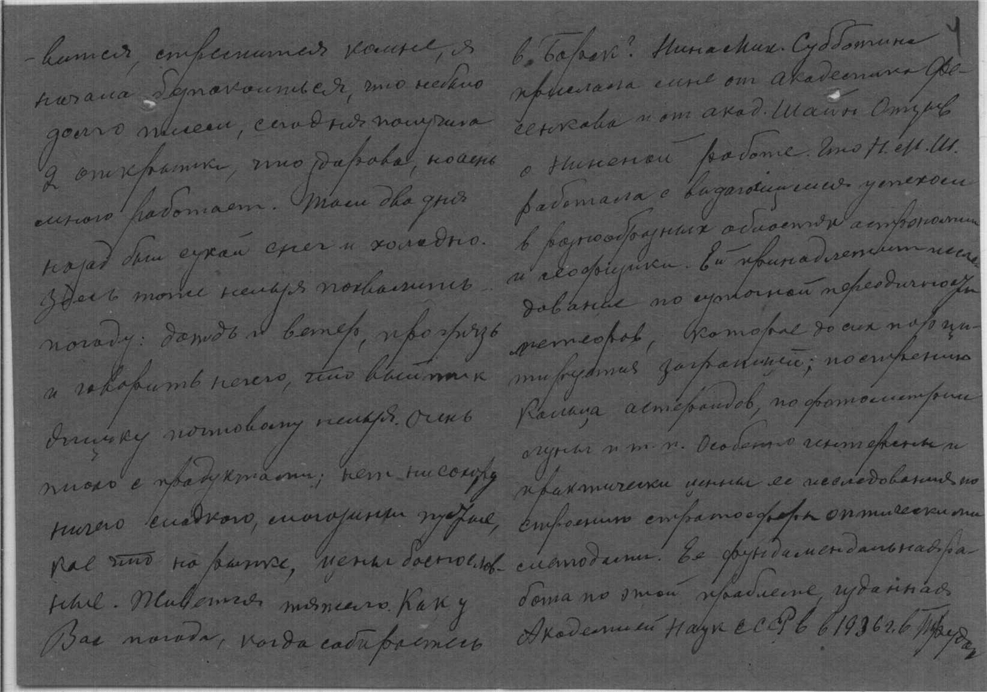 -вится, стремится ко мне, я
начала беспокоиться, что небыло
долго писем, сегодня получила
2 открытки, что здорова, но очень
много работает. Там два дня
назад был сухой снег и холодно.
Здесь тоже нельзя похвалить
погоду: дождь и ветер, про грязь
и говорить нечего, что выйти к
ящику почтовому нельзя. Очень
плохо с продуктами; нет ни сахару
ничего сладкого, магазины пустые,
кое что на рынке, цены баснослов-
ные. Живется тяжело. Как у
Вас погода, когда собираетесь
4
в "Борок"? Нина Мик. Субботина
прислала мне от академика Фе-
сенкова и от акад. Шайн Отзыв
о Нинёной работе. Что Н. М. Ш.
работала с выдающимися успехом
в разнообразных областях астрономии
и геофизики. Ей принадлежит иссле
дование по суточной переодичности
метеоров, которое до сих пор ци-
тируется заграницей; построению
Кольца астероидов, по фотометрии
луны и т. п. Особенно интересны и
практически ценны ее исследования по
строению стратосферы оптическими
методами. Ее фундаментальная ра-
бота по этой проблеме, изданная
Академией Наук СССР в 1936 г. в Трудах